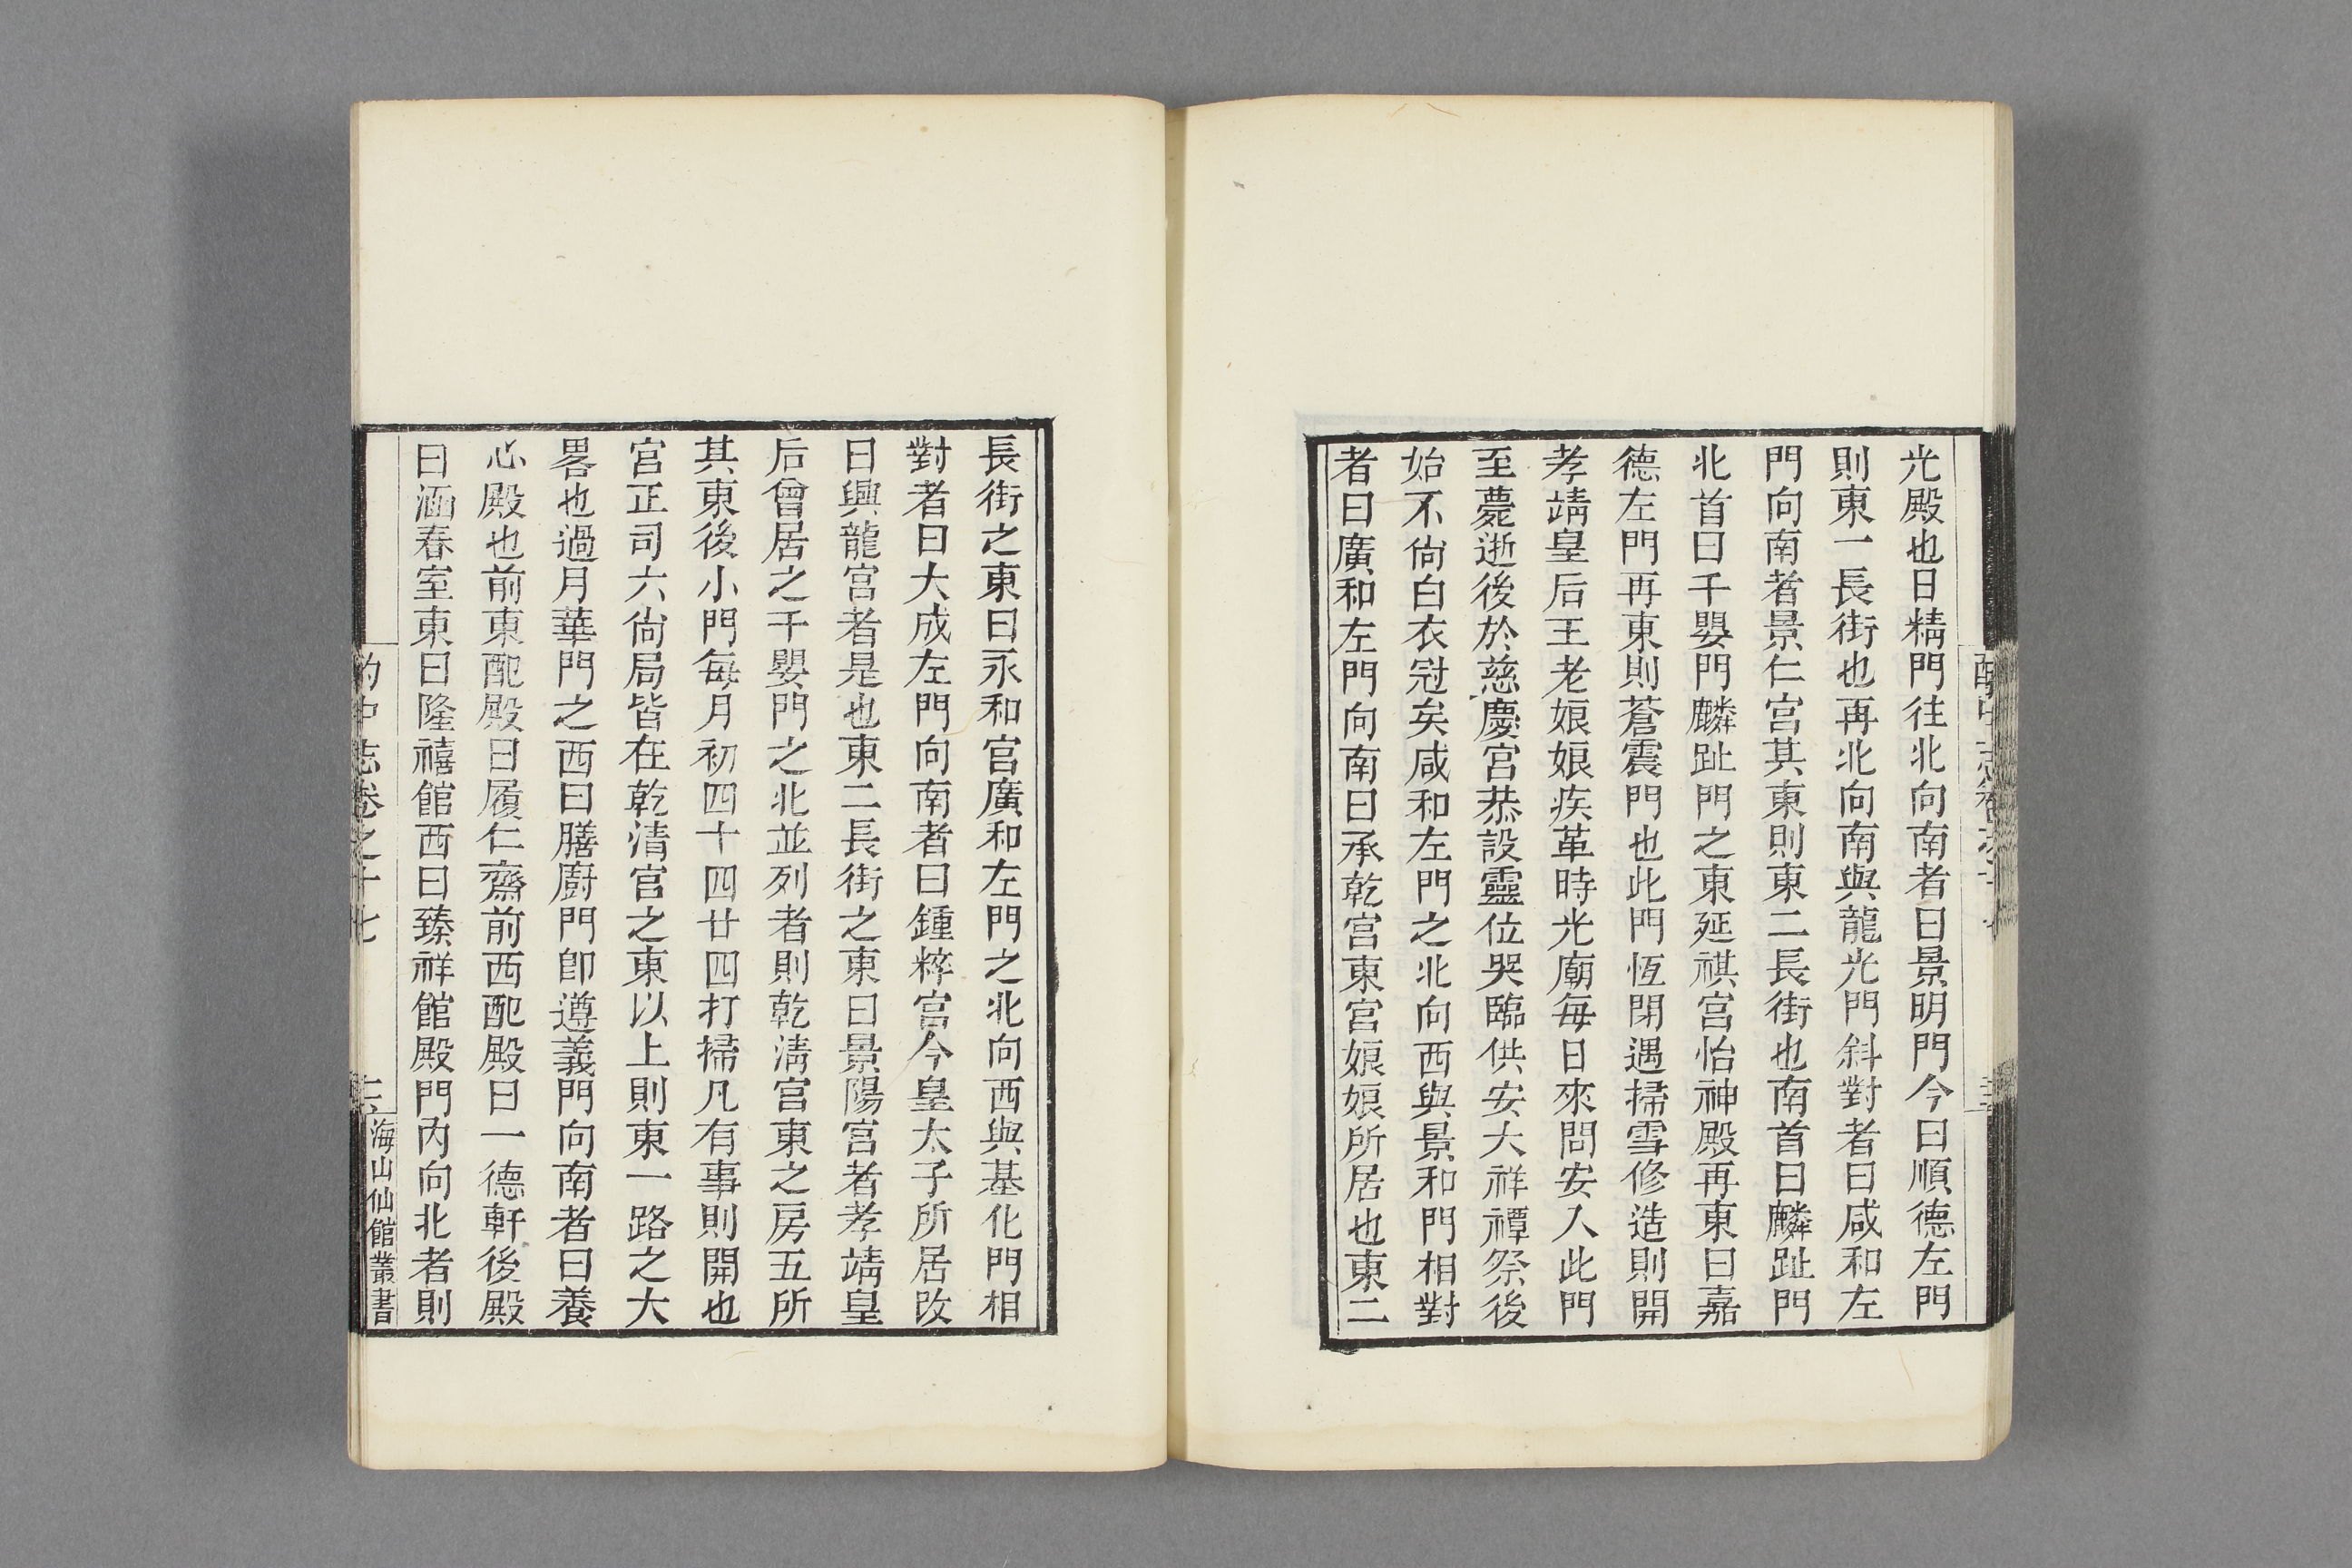 光殿也日精門往北向南者曰景明門今曰順德左門
則東一長街也再北向南與龍光門斜對者曰咸和左
門向南者景仁宮其東則東二長街也南首曰麟趾門
北首曰千嬰門麟趾門之東延祺宮怡神殿再東曰嘉
德左門再東則蒼震門也此門恆閉遇掃雪修造則開
孝靖皇后王老娘娘疾革時光廟每日來問安入此門
至薨逝後於慈慶宮恭設靈位哭臨供安大祥禫祭後
始不尙白衣冠矣咸和左門之北向西與景和門相對
者曰廣和左門向南曰承乾宮東宮娘娘所居也東二
長街之東曰永和宮廣和左門之北向西與基化門相
對者曰大成左門向南者曰鍾粹宮今皇太子所居改
曰興龍宮者是也東二長街之東曰景陽宮者孝靖皇
后曾居之千嬰門之北並列者則乾淸宮東之房五所
其東後小門每月初四十四廿四打掃凡有事則開也
宮正司六尙局皆在乾清宮之東以上則東一路之大
畧也過月華門之西曰膳廚門卽遵義門向南者曰養
心殿也前東配殿曰履仁齋前西配殿曰一德軒後殿
曰涵春室東曰隆禧館西曰臻祥館殿門內向北者則
酌中志卷之十七
海山仙館叢書